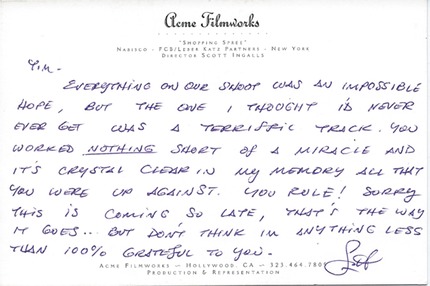 Acme Filmworks
"Shopping Spree"
Nabisco - FCB/Leber Katz Partners - New York
Director Scott Ingalls
Tim -
Everything on our shoot was an impossible
hope, but the one I thought I'd never
ever get was a terrific track. You
worked nothing short of a miracle and
it's crystal clear in my memory all that
you were up against. You rule! Sorry
this is coming so late, that's the way
it goes... but don't think I'm anything less
than 100% grateful to you.
Acme Filmworks – Hollywood, CA – 323.464.780
Production & Representation